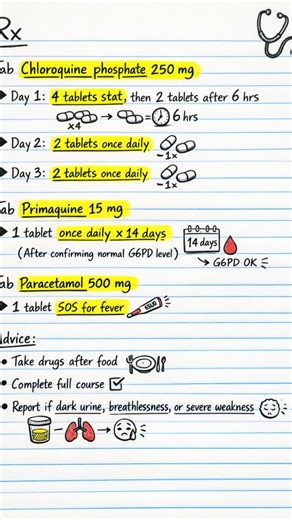 Rx
Tab Chloroquine phosphate 250 mg
Day 1: 4 tablets stat, then 2 tablets after 6 hrs
x4 → = 6 hrs
Day 2: 2 tablets once daily
1x
Day 3: 2 tablets once daily
1x
Tab Primaquine 15 mg
1 tablet once daily x 14 days
14 days
(After confirming normal G6PD level)
G6PD OK
Tab Paracetamol 500 mg
1 tablet SOS for fever
Advice:
• Take drugs after food
• Complete full course
• Report if dark urine, breathlessness, or severe weakness